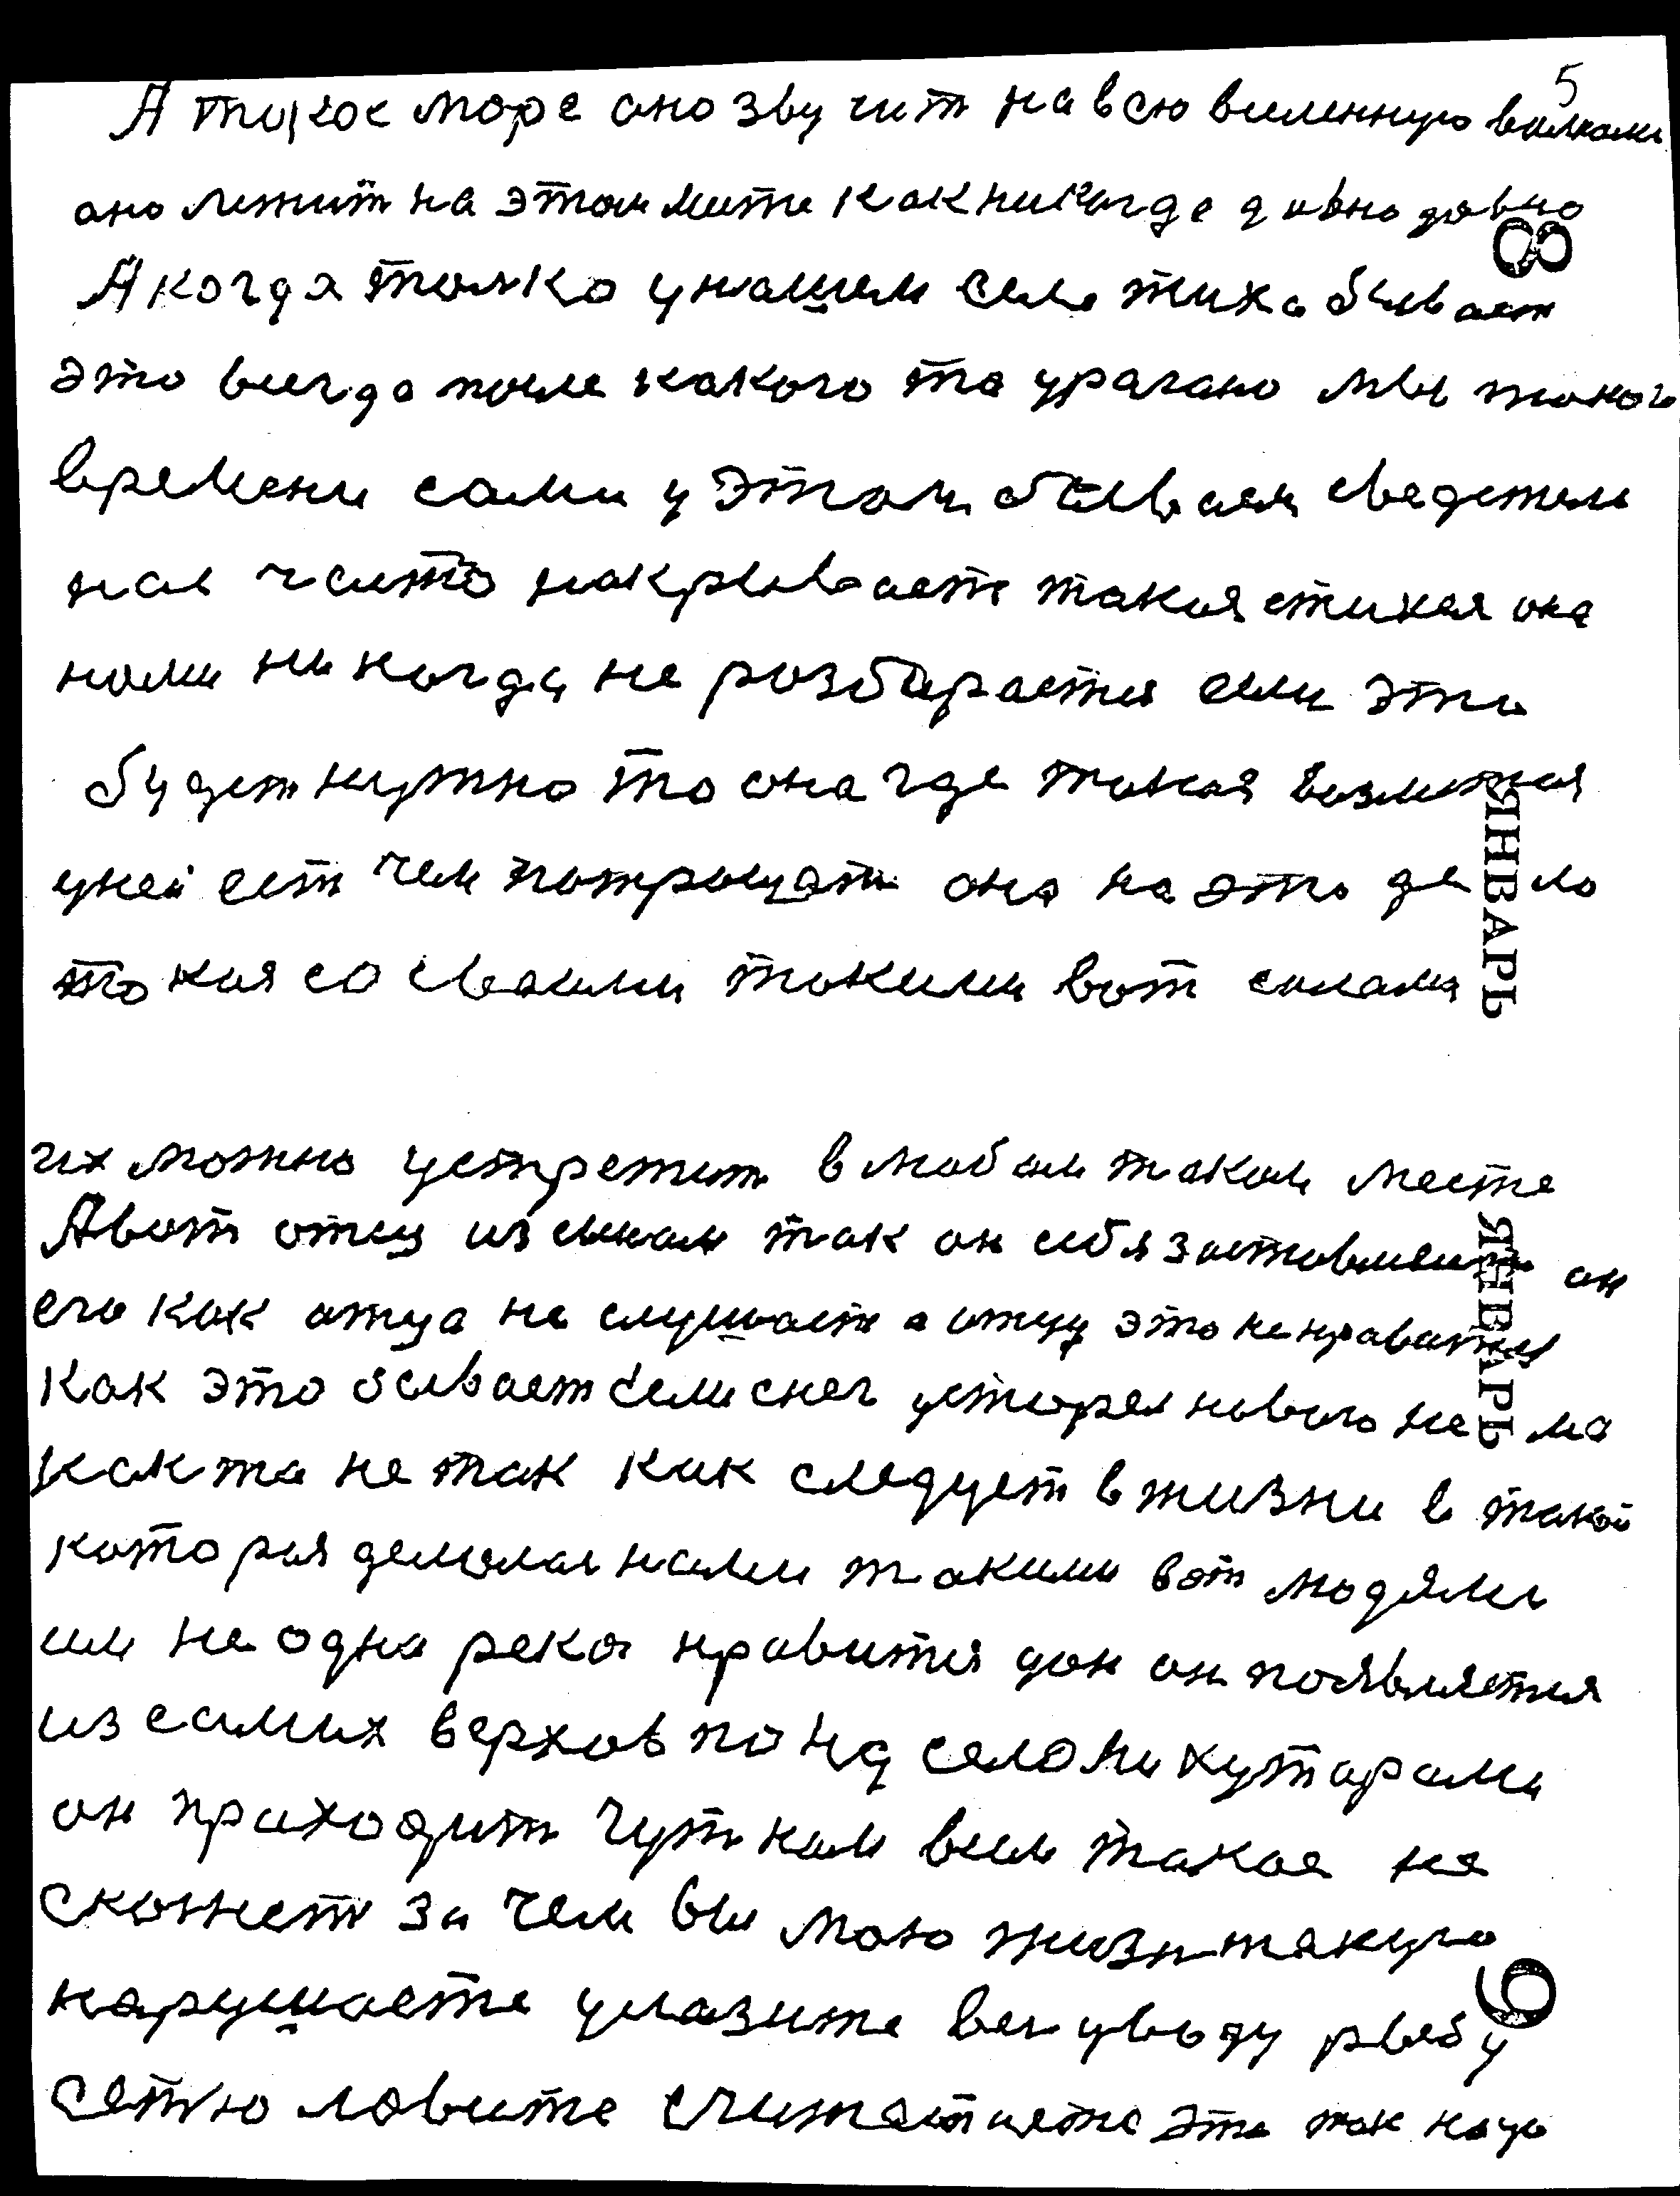 5
А такое море оно звучит на всю вселенную волнами
оно лежит на этом месте как никогда давно давно
8
А когда толко у нашем селе тихо бывает
это всегда после какого то урагано мы таког
времени сами у этом бываем сведетели
нас часто накривает такая стихея она
нами никогда не розбирается если это
будет нужно то она где такая возмется
у ней ест чем потрощат она на это дело
ЯНВАРЬ
то кая со своими такими вот силами
их можно устретит в любом таком месте
А вот отец из сыном так он себя заставляет он
ЯНВАРЬ
его как отца не слушает а отцу это не нравится
Как это бывает если снег устарел нового нема
как то не так как следует в жизни в такой
которая делолас нами такими вот людями
им не одна река нравится дон он появляется
из самих верхов по над селоми хуторами
он приходит чут нам всем такое не
скожет за чем вы мою жизн такую
нарушаете улазите в мену воду рыбу
9
сетю ловите считаете это так надо